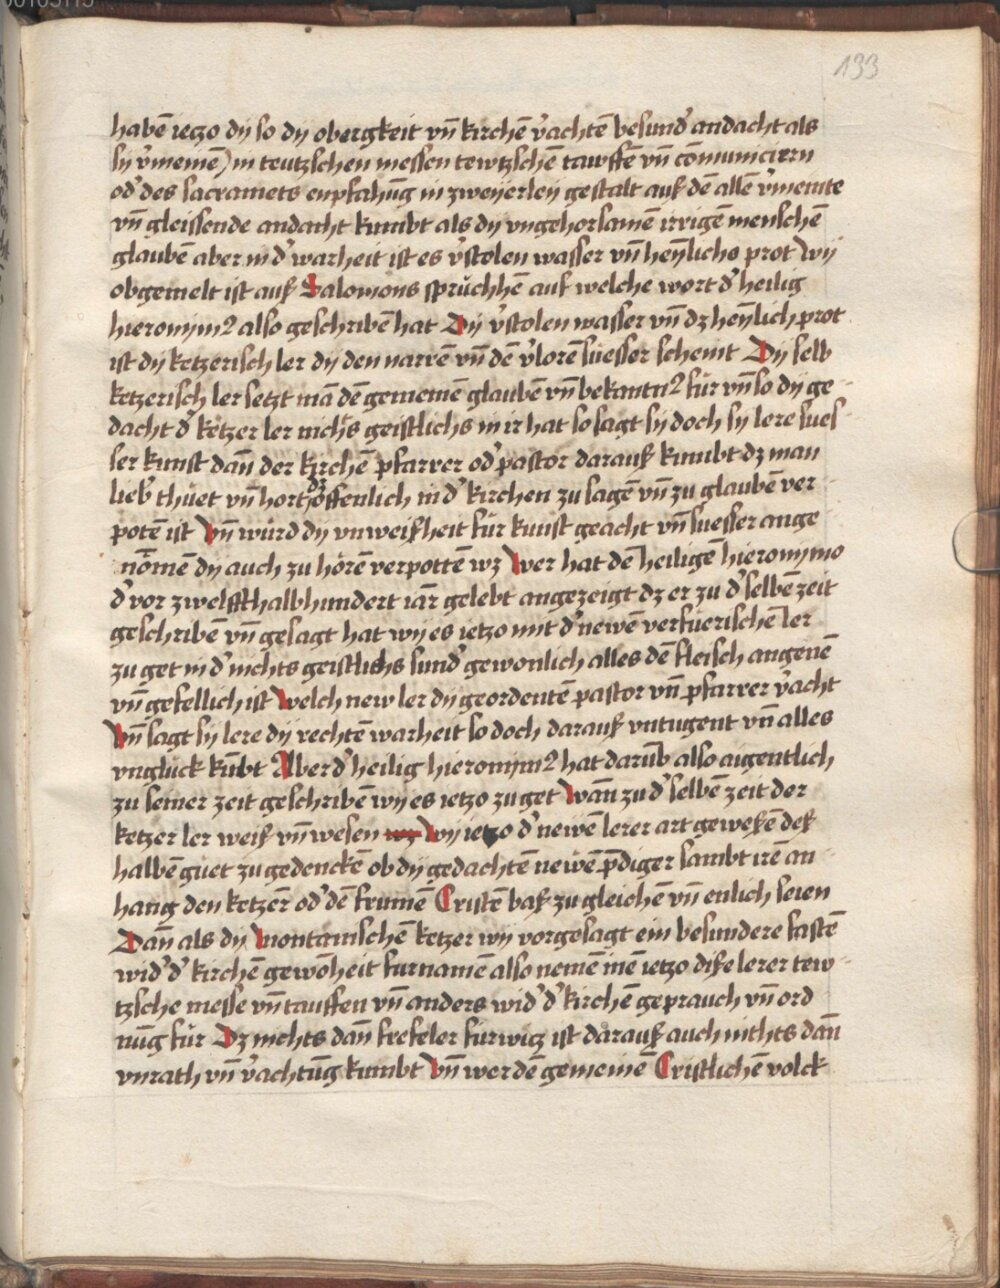 133
habē ietzo dij so dij obergkeit vn̄ kirchē v̓achtē besund̓ andacht als
sij v̓meinē) in teutzschen messen tewtzschē tauffē vn̄ cōmunicirn
od̓ des sacramets enpfahūg in zweijerleij gestalt auß dē allē v̓meinte
vn̄ gleissende andacht kumbt als dij vngehorsamē irrigē menschē
glaubē aber in d̓ warheit ist es v̓stolen wasser vn̄ heӯlichs prot Wij
obgemelt ist auß Salomons sprüchhē auf welche wort d̓ heilig
hieronijmꝰ also geschribē hat Dij v̓stolen wasser vn̄ dz heӯlich prot
ist dij ketzerisch ler dij den narrē vn̄ dē v̓lorē suesser scheint Dij selb
ketzerisch ler setzt mā dē gemeinē glaubē vn̄ bekantnꝰ für vn̄ so dij ge
dacht d̓ ketzer ler nichts geistlichs in ir hat so sagt sij doch sij lere sues
ser kunst dan̄ der kirchē pfarrer od̓ pastor darauß kumbt dz man
lieb̓ thuet vn̄ hort dz öffenlich in d̓ kirchen zu sagē vn̄ zu glaubē ver
potē ist Vn̄ würd dij vnweißheit für kunst geacht vn̄ suesser ange
nōmē dij auch zu hörē verpottē wz Wer hat dē heiligē hieronijmo
d̓ vor zwelffthalbhundert iar gelebt angezeigt dz er zu d̓ selbē zeit
geschribē vn̄ gesagt hat wij es ietzo mit d̓ newē verfüerischē ler
zu get in d̓ nichts geistlichs sund̓ gewonlich alles dē fleisch angenē
vn̄ gefellich ist Welch new ler dij geordentē pastor vn̄ pfarrer v̓acht
Vn̄ sagt sij lere dij rechtē warheit so doch darauß vntugent vn̄ alles
vnglück kūbt Aber d̓ heilig hieronijmꝰ hat darūb also aigentlich
zu seiner zeit geschribē wij es ietzo zu get Wan̄ zu d̓ selbē zeit der
ketzer ler weiß vn̄ wesen wz Wij ietzo d̓ newē lerer art geweßē deß
halbē guet zu gedenckē ob dij gedachtē newē p̄diger sambt irē an
hang den ketzerē od̓ dē frumē Cristē baß zu gleichē vn̄ enlich seien
Dan̄ als dij Montanischē ketzer wij vorgesagt ein besundere fastē
wid̓ d̓ kirchē gewōheit furnamē also nemē inē ietzo diße lerer tew
tzsche messe vn̄ tauffen vn̄ anders wid̓ d̓ kirchē geprauch vn̄ ord
nūg für Dz nichts dan̄ frefeler fürwitz ist darauß auch nichts dan̄
vnrath vn̄ v̓achtūg kumbt Vn̄ werdē gemeinē Cristlichē volck